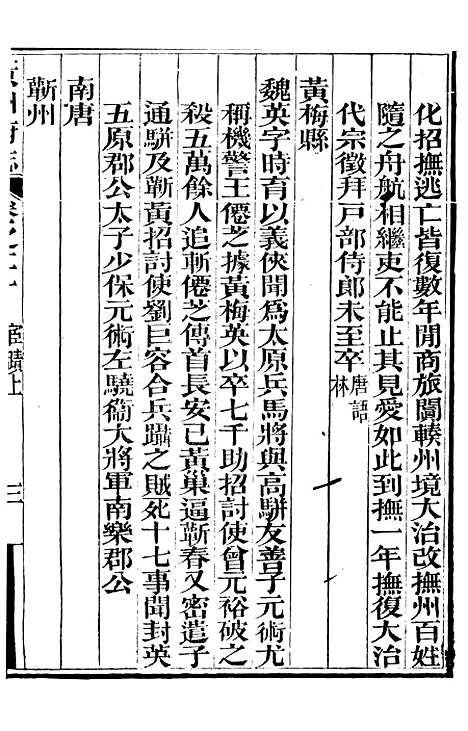 化招撫逃亡皆復數年閒商旅闐轃州境大治改撫州百姓
隨之舟航相繼吏不能止其見愛如此到撫一年撫復大治
代宗徵拜戸部侍郎未至卒唐語林
黃梅縣
魏英字時育以義俠聞爲太原兵馬將與高駢友善子元術尤
稱機警王僊芝據黃梅英以卒七千助招討使曾元裕破之
殺五萬餘人追斬僊芝傳首長安已黃巢逼蘄春又密遣子
通駢及蘄黃招討使劉巨容合兵躡之賊死十七事聞封英
五原郡公太子少保元術左驍衞大將軍南樂郡公
南唐
蘄州
宦蹟上